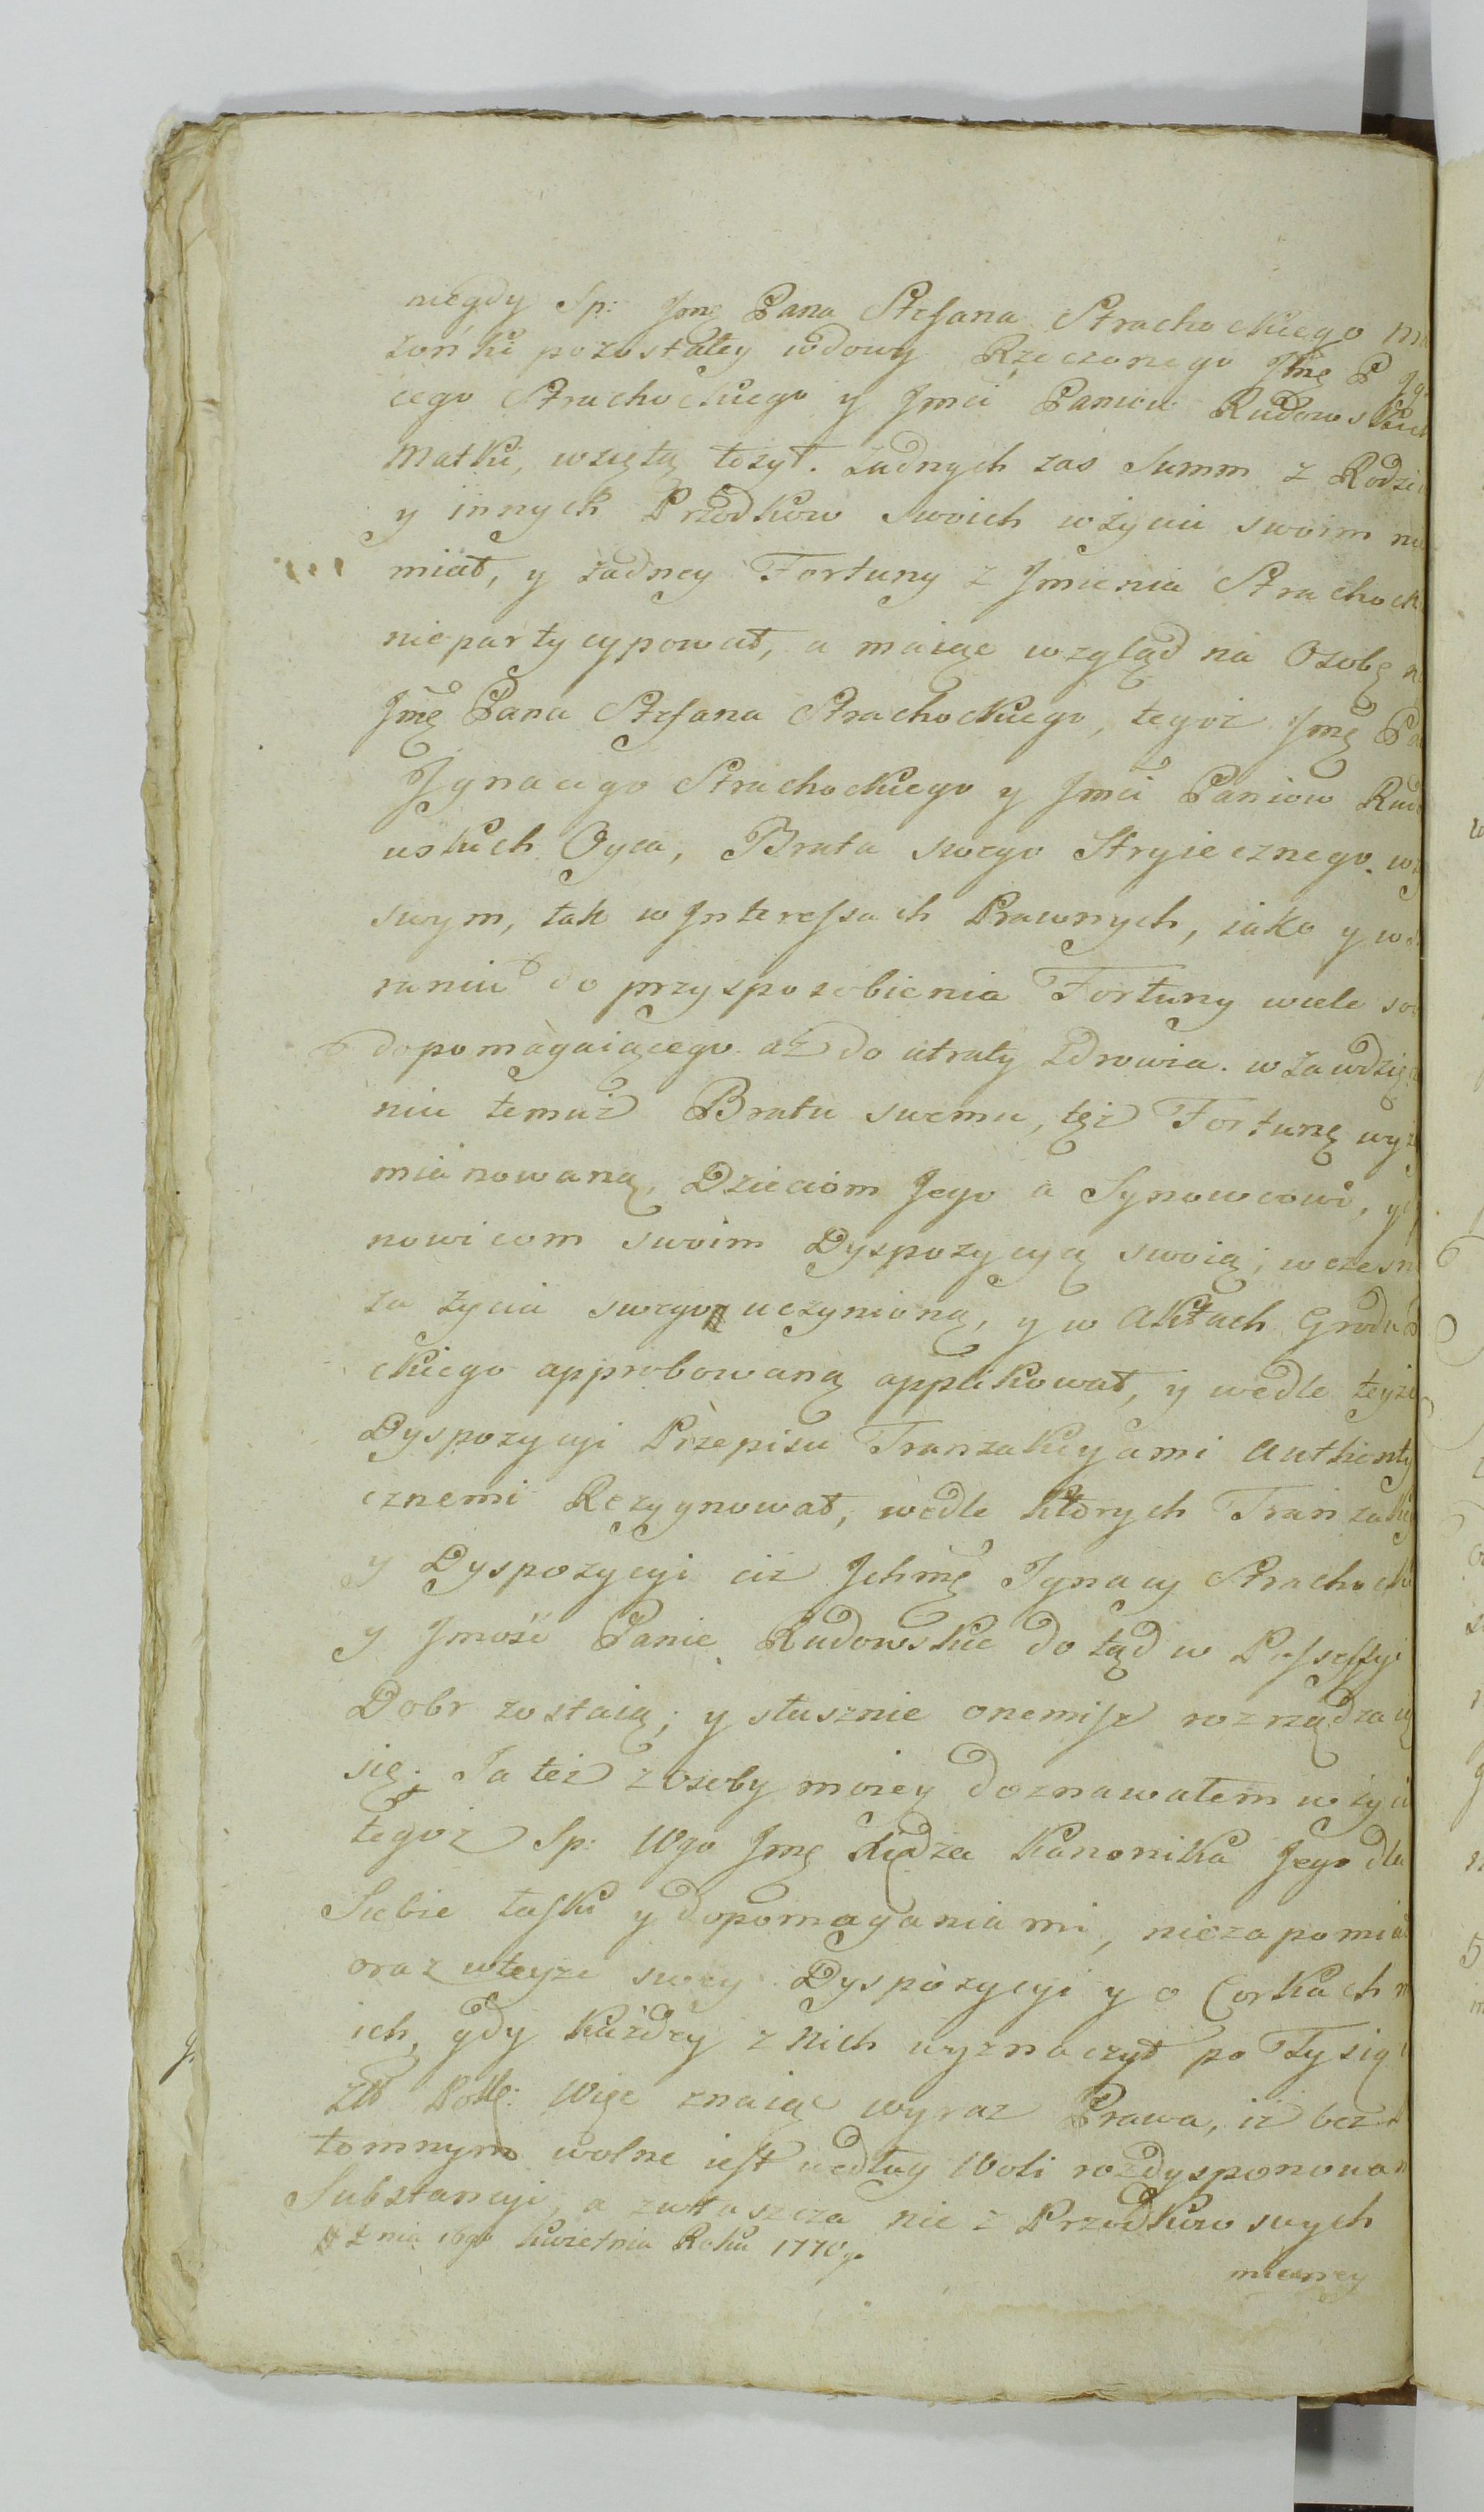 niegdy Sp: Jmę Pana Stefana Strachockiego Ma
żonki pozostałey wdowy Rzeczonego Jmę P Jgn
cego Strachockiego y Jmci Paniow Rudowskich
Matki, wziętą łożył. żadnych zas Summ z Rodzic
y innych Przodkow swoich w życiu swoim nie
miał, y żadney Fortuny z Jmienia Strachock
niepartycypował, a maiąc wzgląd na Osobę n
Jmę Pana Stefana Strachockiego, tegoż Jmę Pa
Jgnacego Strachockiego y Jmci Paniow Rudo
wskich Oyca, Brata swego Stryiecznego. w ży
swym, tak w Jnteressach Prawnych, iako y w st
raniu do przysposobienia Fortuny wiele so
dopomagaiącego aż do utraty Zdrowia. w zawdzięcze
niu temuż Bratu swemu, tęż Fortunę wyż
mianowaną, Dzieciom Jego a Synowcowi, y Sy
nowicom swoim Dyspozycyą swoią; wczesn
za życia swego # uczynioną, y w Aktach Grodu
ckiego approbowaną applikował, y wedle teyże
Dyspozycyi Przepisu Tranzakcyami Authenty
cznemi Rezygnował, wedle ktorych Tranzakcy
y Dyspozycyi ciż Jchmę Jgnacy Strachocki
y Jmość Panie Rudowskie do tąd w Possessyi
Dobr zostaią; y słusznie onemisz rozrządzaią
się. Ja też z osoby moiey doznawałem w życiu
tegoż Sp: Wgo Jmę Xiędza Kanonika Jego dla
Siebie łaski y dopomagania mi, niezapomiał
oraz w teyże swey Dyspozycyi y o Corkach m
ich, gdy każdey z Nich wyznaczył po Tysiąc
Zł Polk: Więc znaiąc wyraz Prawa, iż bez
tomnym wolne iest według Woli rozdysponowan
Substancyi, a zwłaszcza nie z Przodkow swych
# Dnia 16go Kwietnia Roku 1770go
mianey